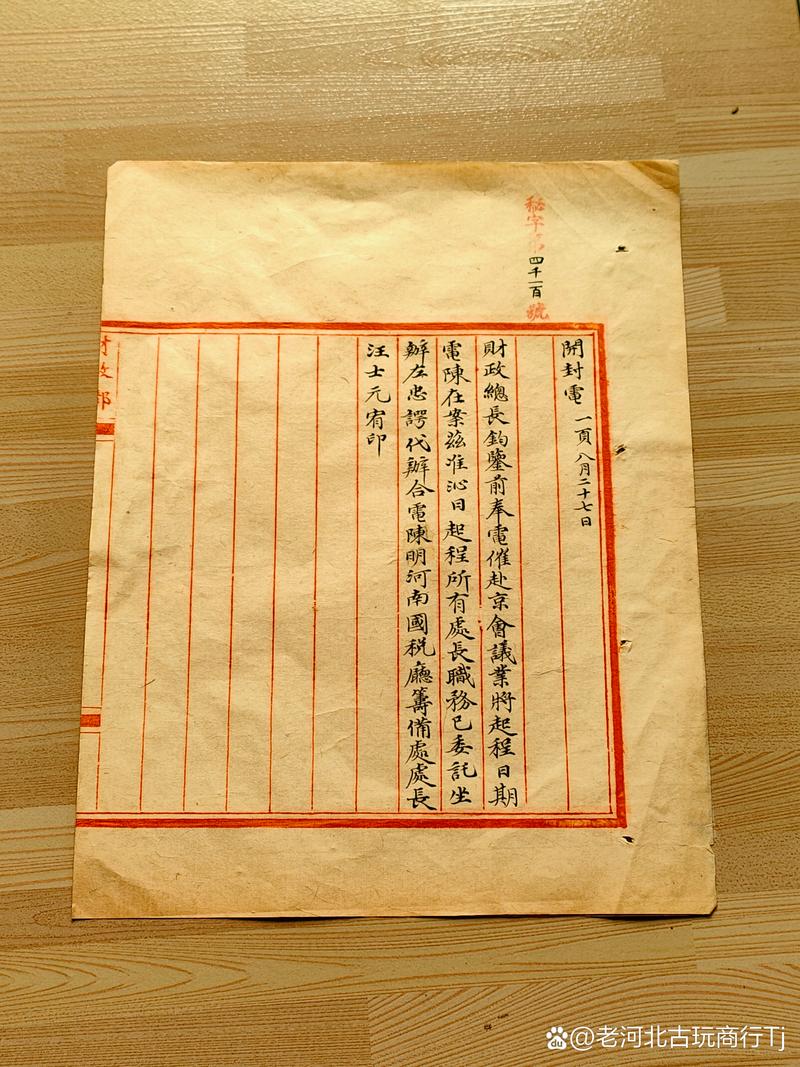 秘字第四千一百號
開封電 一頁 八月二十七日
財政總長鈞鑒前奉電催赴京會議業將起程日期
電陳在案茲准沁日起程所有處長職務已委託坐
辦左忠諤代辦合電陳明河南國稅廳籌備處處長
汪士元宥印
財政部
@老河北古玩商行Tj